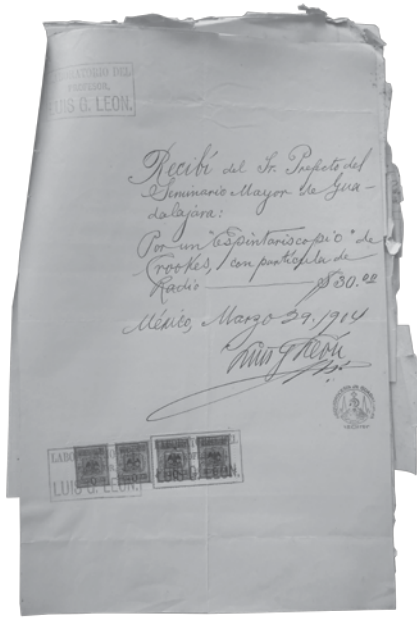 LABORATORIO DEL
PROFESOR,
LUIS G. LEON.
Recibí del Sr. Prefecto del
Seminario Mayor de Gua-
dalajara:
Por un "Espintariscopio" de
Crookes, con partícula de
Radio — $30.00
México, Marzo 29. 1914
Luis G León
LUIS G. LEON.
LUIS G. LEON.